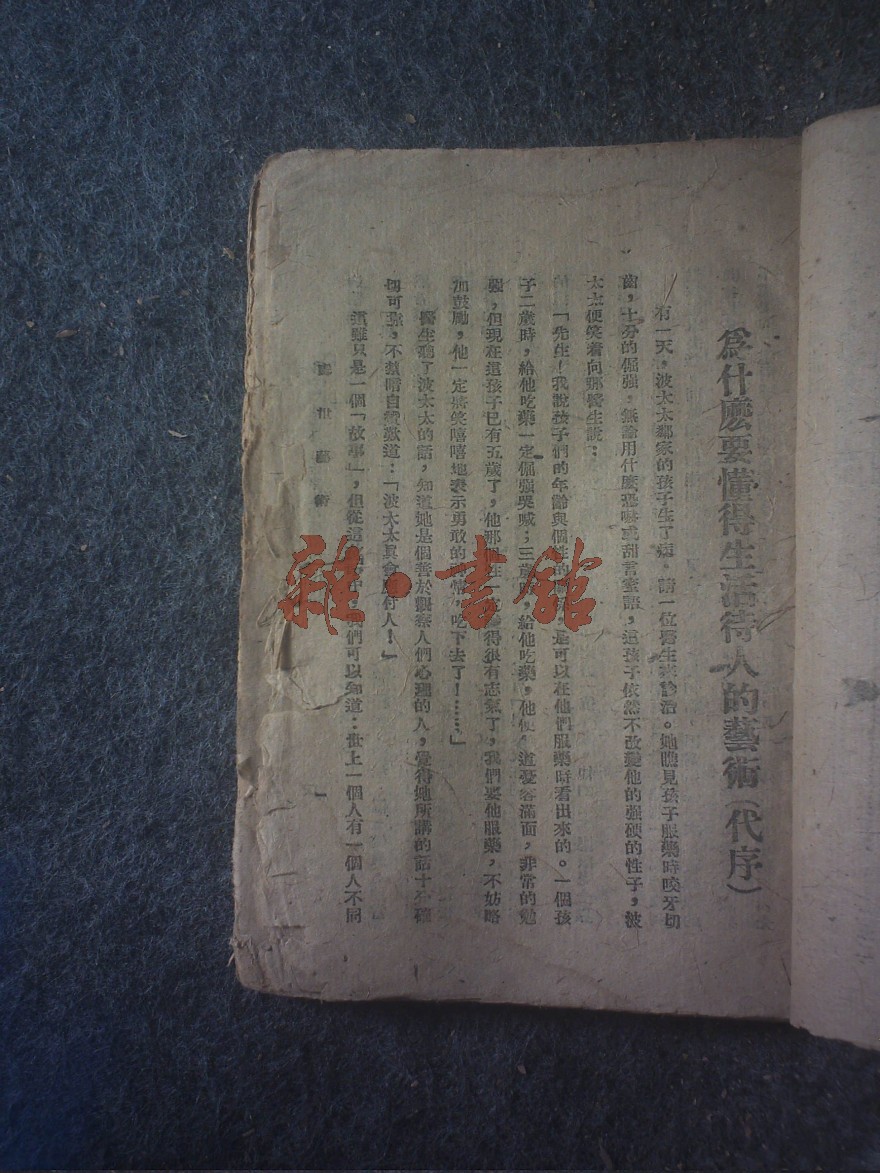 爲什麽要懂得生活待人的藝術(代序)
有一天，波太太鄰家的孩子生了病，請一位醫生來診治。她瞧見孩子服藥時咬牙切
齒，十分的倔強，無論用什麽恐嚇或甜言蜜語，這孩子依然不改變他的强硬的性子，波
太太便笑着向那醫生說：
「先生！我說孩子們的年齡與個性的 是可以在他們服藥時看出來的。一個孩
子二歲時，給他吃藥一定倔強哭喊；三歲時，給他吃藥，他便 道愁容滿面，非常的勉
强，但現在這孩子已有五歲了，他那 在一定 得很有志氣了，我們要他服藥，不妨略
加鼓勵，他一定將笑嘻嘻地表示勇敢的 常，吃下去了！……」
醫生聽了波太太的話，知道她是個善於觀察人們心理的人，覺得她所講的話十分確
切可靠，不禁暗自讚歎道：「波太太眞會應付人！」
這雖只是一個「故事」，但從這 中，我們可以知道：世上一個人有一個人不同
處世藝術
一
雜·書館